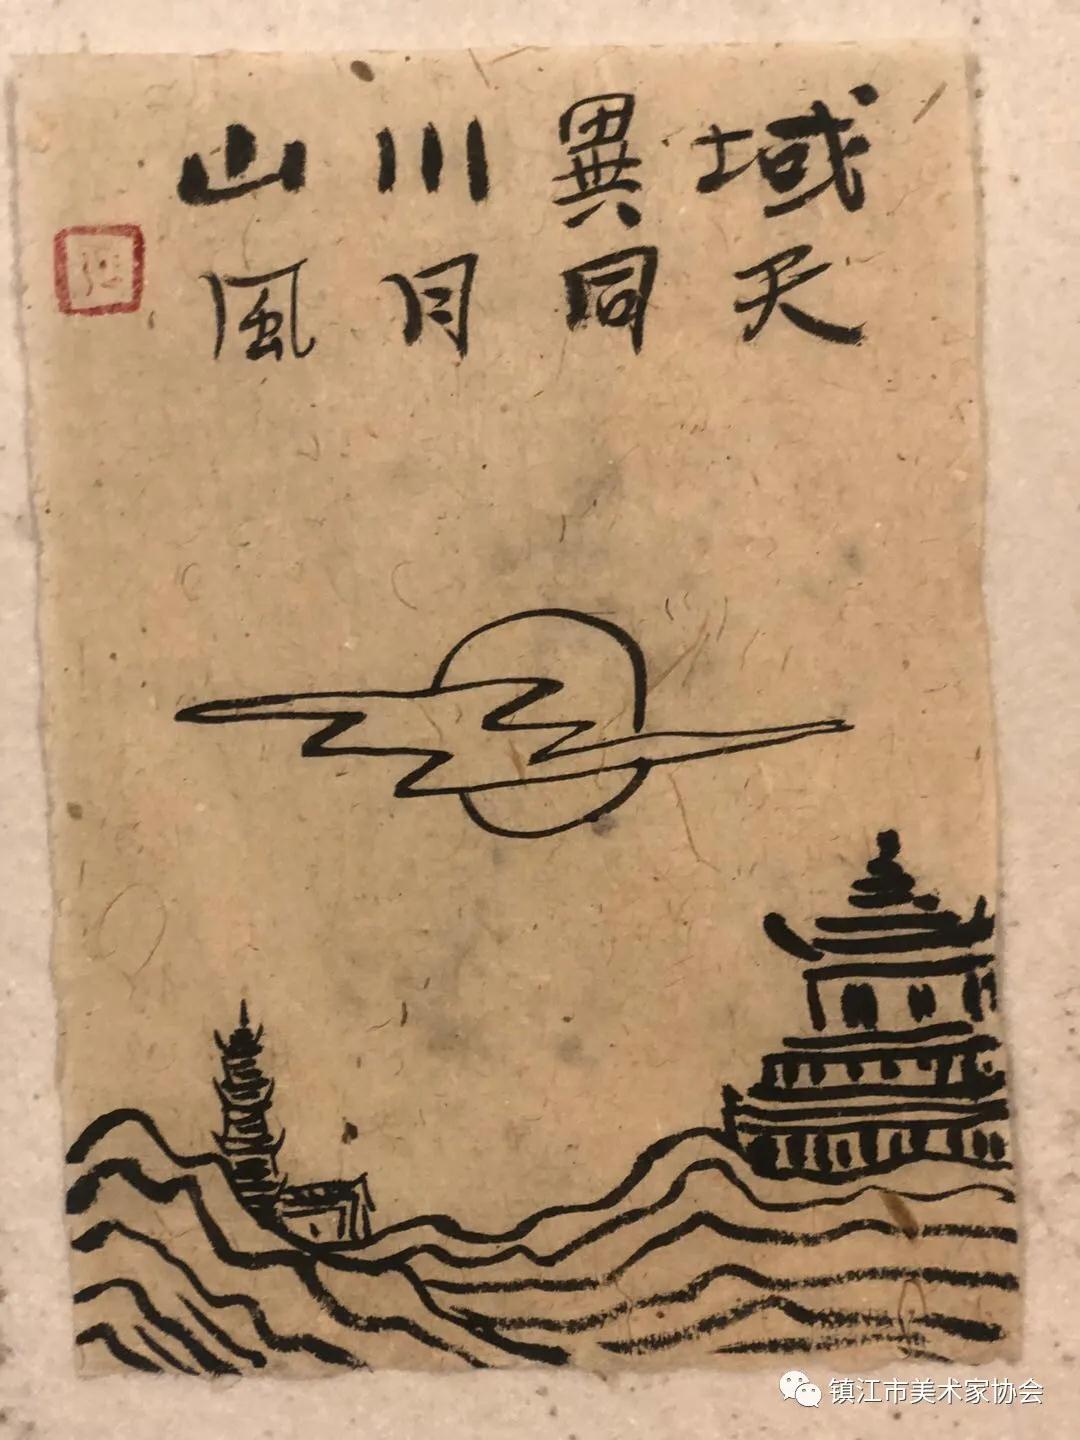 山川異域
風月同天
镇江市美术家协会